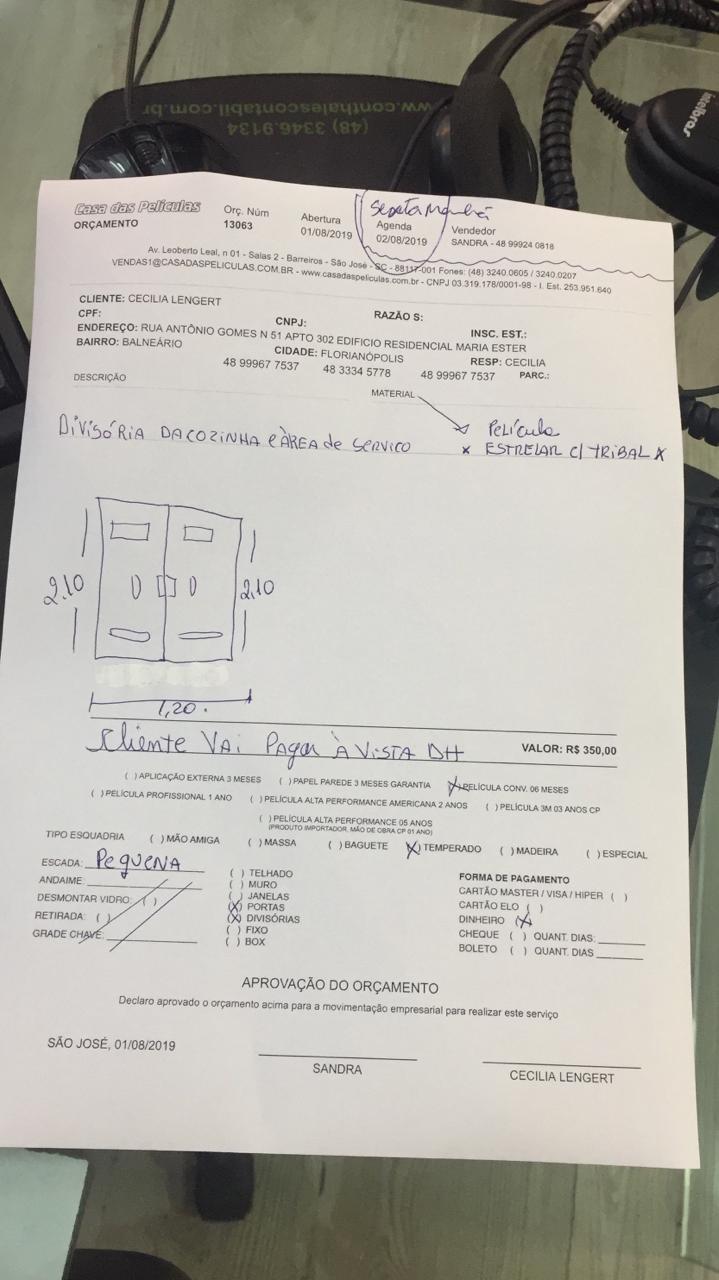 www.conthalescontabil.com.br
(48) 3346.9134
intelbras
Casa das Películas
ORÇAMENTO
Orç. Núm
13063
Abertura
01/08/2019
Agenda
02/08/2019
Vendedor
SANDRA - 48 99924 0818
Av. Leoberto Leal, n 01 - Salas 2 - Barreiros - São José - SC - 88117-001 Fones: (48) 3240.0605 / 3240.0207
VENDAS1@CASADASPELICULAS.COM.BR - www.casadaspeliculas.com.br - CNPJ 03.319.178/0001-98 - I. Est. 253.951.640
CLIENTE: CECILIA LENGERT RAZÃO S:
CPF: CNPJ: INSC. EST.:
ENDEREÇO: RUA ANTÔNIO GOMES N 51 APTO 302 EDIFICIO RESIDENCIAL MARIA ESTER
BAIRRO: BALNEÁRIO CIDADE: FLORIANÓPOLIS RESP: CECILIA
48 99967 7537 48 3334 5778 48 99967 7537 PARC.:
DESCRIÇÃO MATERIAL
DIVISÓRIA DA COZINHA e ÀREA de SERVICO
Película
x ESTRELAR C/ TRIBAL x
2.10 2.10
1,20.
Cliente Vai Pagar À VISTA DH VALOR: R$ 350,00
( ) APLICAÇÃO EXTERNA 3 MESES ( ) PAPEL PAREDE 3 MESES GARANTIA (X) PELÍCULA CONV. 06 MESES
( ) PELÍCULA PROFISSIONAL 1 ANO ( ) PELÍCULA ALTA PERFORMANCE AMERICANA 2 ANOS ( ) PELÍCULA 3M 03 ANOS CP
( ) PELÍCULA ALTA PERFORMANCE 05 ANOS
(PRODUTO IMPORTADOR, MÃO DE OBRA CP 01 ANO)
TIPO ESQUADRIA ( ) MÃO AMIGA ( ) MASSA ( ) BAGUETE (X) TEMPERADO ( ) MADEIRA ( ) ESPECIAL
ESCADA: PeqUENA
ANDAIME:
DESMONTAR VIDRO: ( )
RETIRADA: ( )
GRADE CHAVE:
( ) TELHADO
( ) MURO
( ) JANELAS
(X) PORTAS
(X) DIVISÓRIAS
( ) FIXO
( ) BOX
FORMA DE PAGAMENTO
CARTÃO MASTER / VISA / HIPER ( )
CARTÃO ELO ( )
DINHEIRO (X)
CHEQUE ( ) QUANT. DIAS:
BOLETO ( ) QUANT. DIAS
APROVAÇÃO DO ORÇAMENTO
Declaro aprovado o orçamento acima para a movimentação empresarial para realizar este serviço
SÃO JOSÉ, 01/08/2019
SANDRA
CECILIA LENGERT